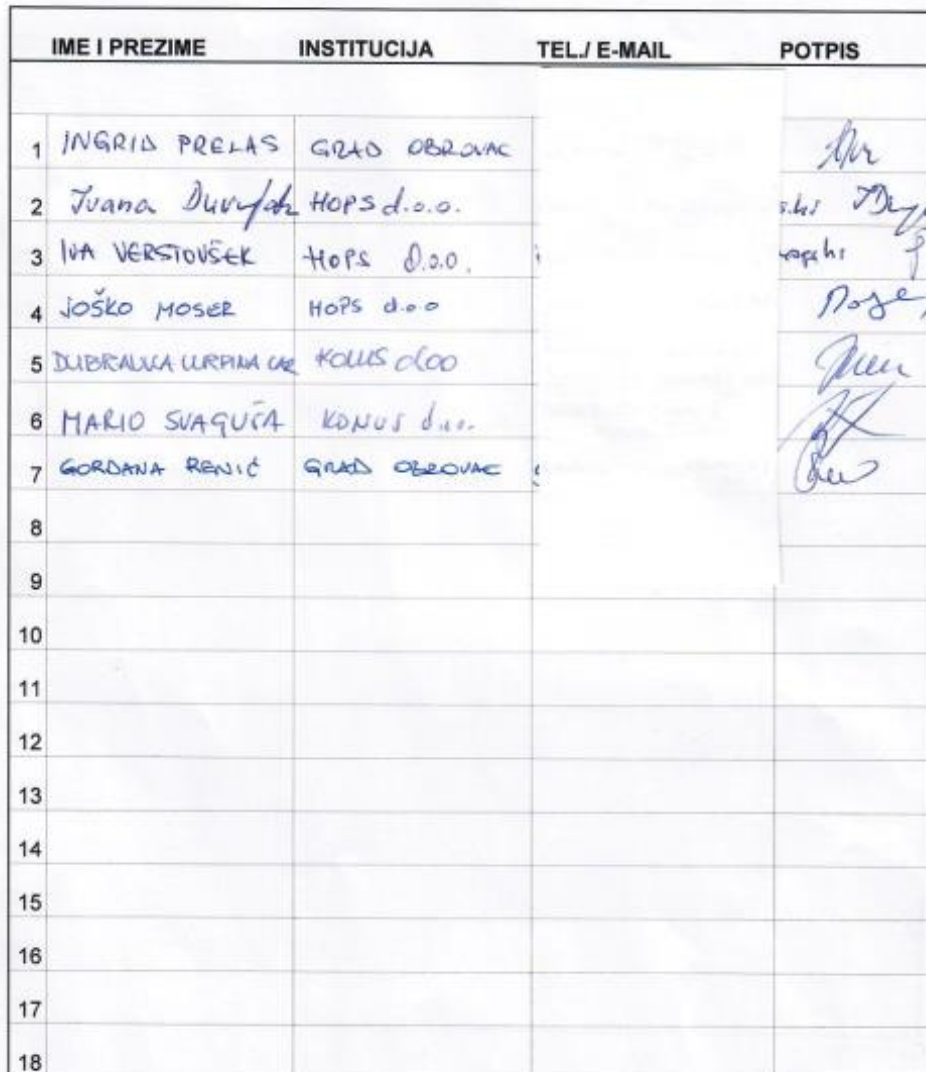 IME I PREZIME INSTITUCIJA TEL./ E-MAIL POTPIS
1 INGRID PRELAS GRAD OBROVAC
2 Ivana HOPS d.o.o.
3 IVA VERSTOVŠEK HOPS d.o.o.
4 JOŠKO MOSER HOPS d.o.o
5 doo
6 MARIO SVAGUŠA KONUS d.o.o.
7 GORDANA RENIĆ GRAD OBROVAC
8
9
10
11
12
13
14
15
16
17
18